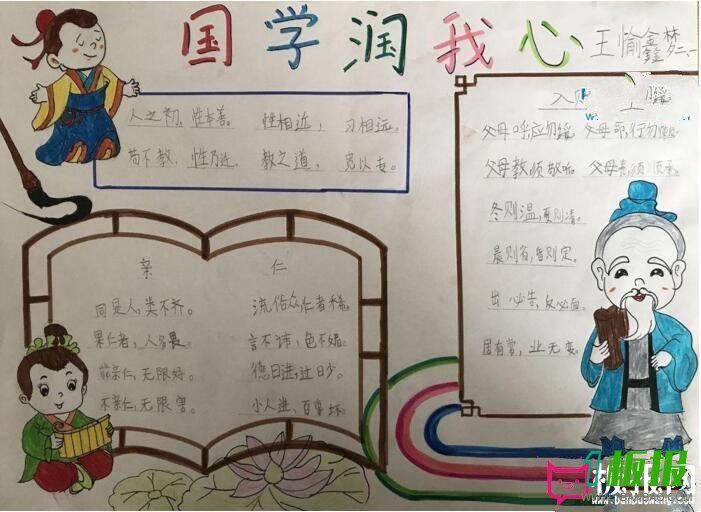 国学润我心
王愉鑫梦
人之初，性本善。 性相近， 习相远。
苟不教，性乃迁， 教之道， 贵以专。
入则
父母呼，应勿缓 父母命，行勿懒
父母教，须敬听 父母责，须顺承
冬则温，夏则凊。
晨则省，昏则定。
出必告，反必面。
居有常，业无变。
亲 仁
同是人，类不齐。 流俗众，仁者稀。
果仁者，人多畏。 言不讳，色不媚。
能亲仁，无限好。 德日进，过日少。
不亲仁，无限害。 小人进，百事坏。
板报网
www.banbaowang.com